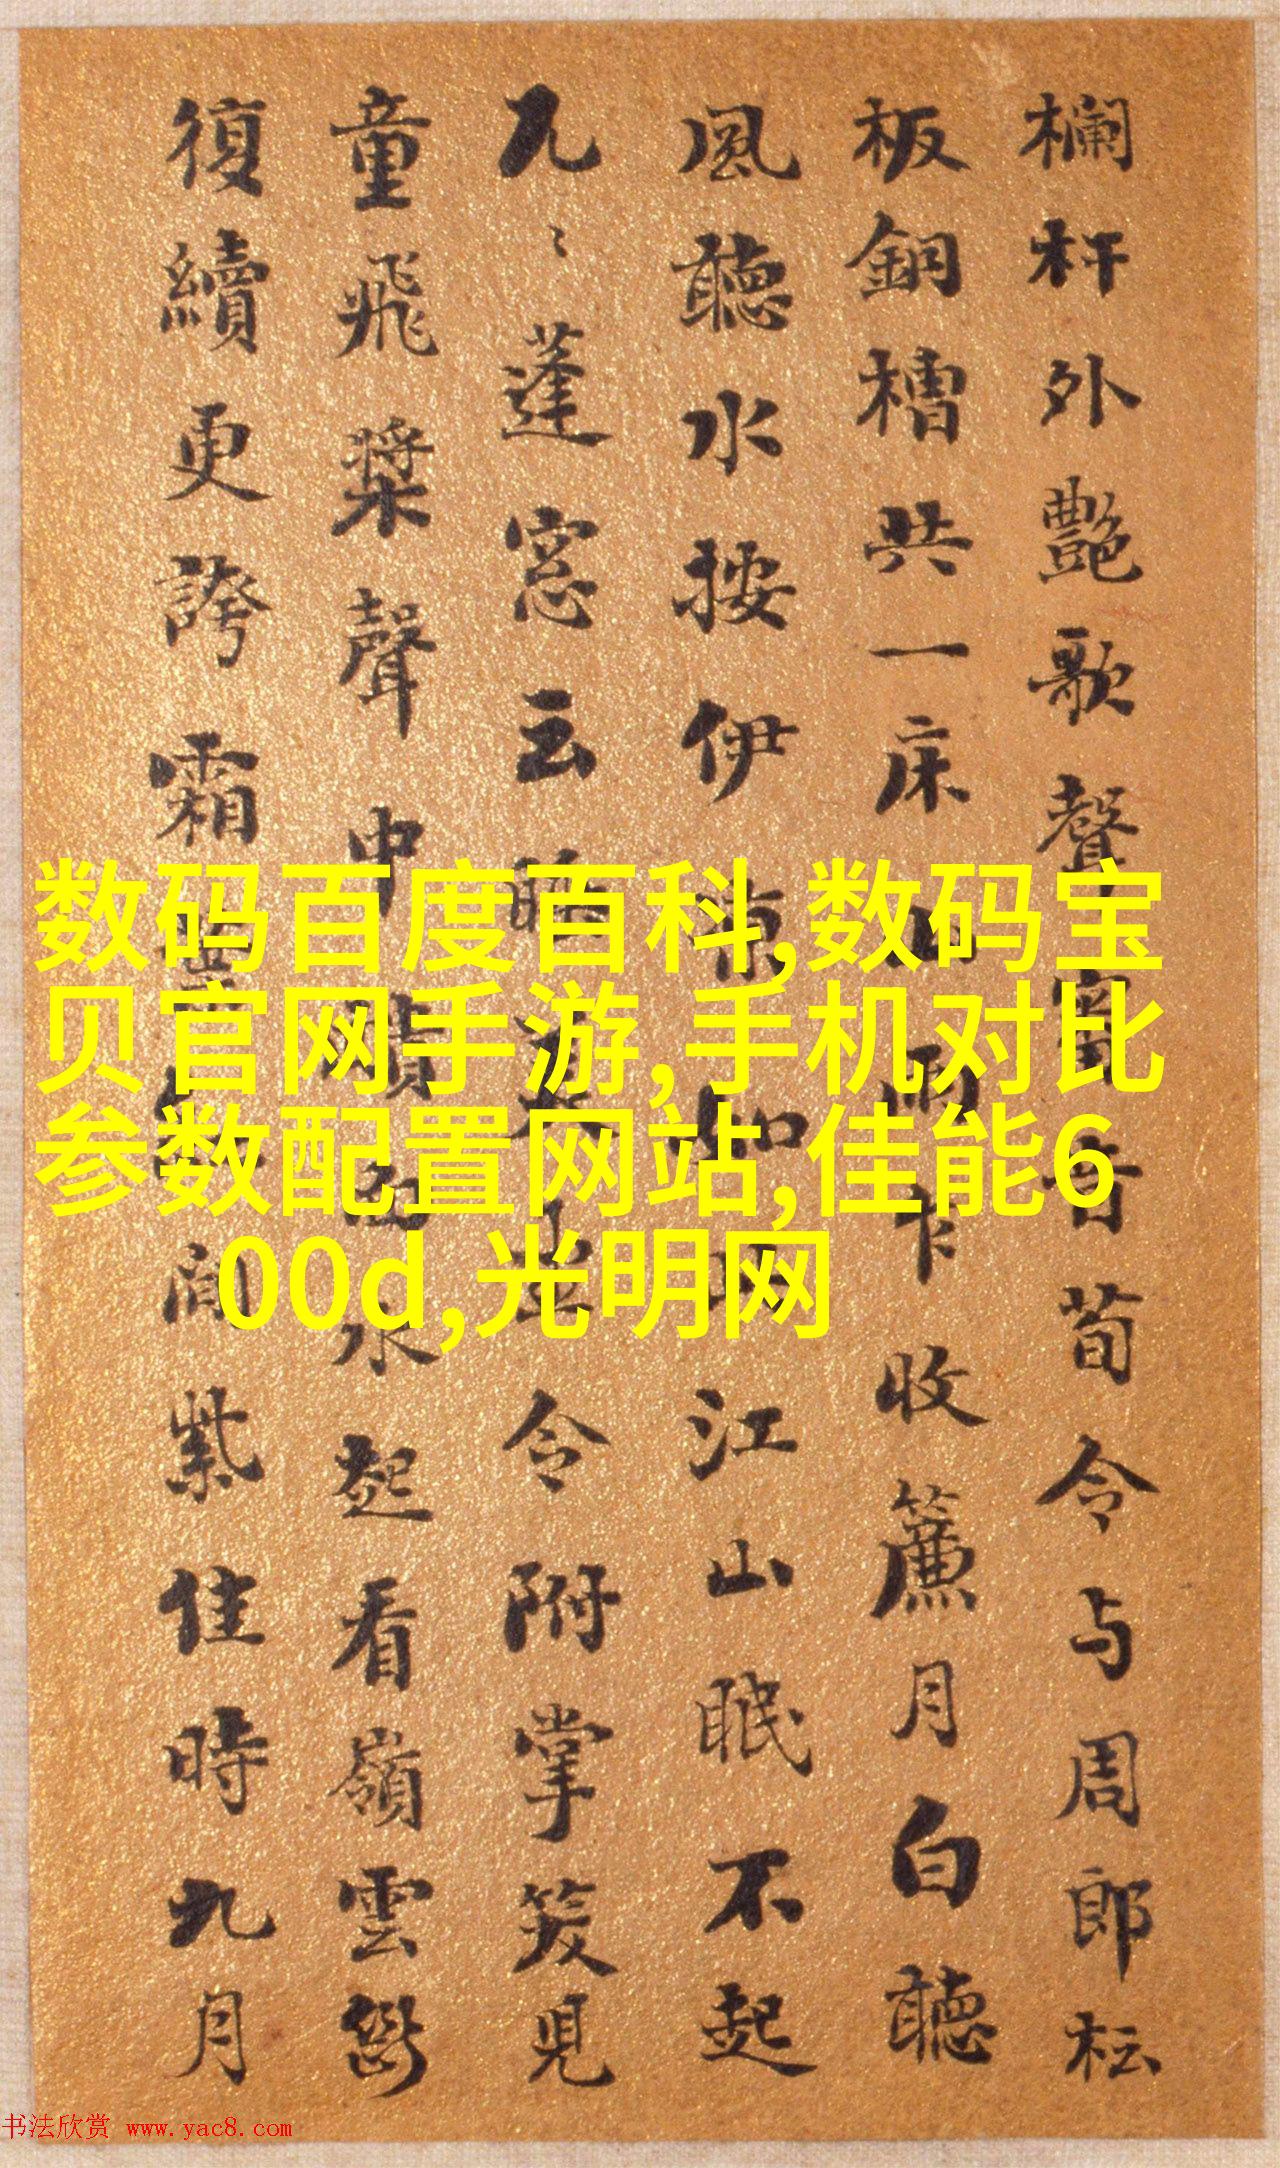 欄杆外艷歌聲音荀令与周郎枟
板銅槽共一床山雨乍收簾月白聽
風聽水按伊涼如江山眠不起
蓬窓云令附掌笑見
童飛槳聲中水起看嶺雲
復續更誇霜間紫佳時九月
数码百度百科,数码宝
贝官网手游,手机对比
参数配置网站,佳能6
00d,光明网
书法欣赏 www.yac8.com